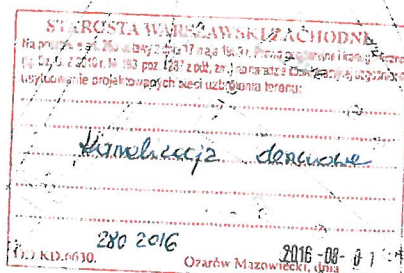 STAROSTA WARSZAWSKI ZACHODNI
Na podstawie art. z dnia 17 maja 1989 r. Prawo geodezyjne i
Dz. U. z 2010 r. Nr 193 poz. 1287 z późn. zm.) na naradzie koordynacyjnej uzgodniono
usytuowanie projektowanych sieci uzbrojenia terenu:
kanalizacja deszczowa
280 2016
KD.6630.
2016 -08- 01
Ożarów Mazowiecki, dnia